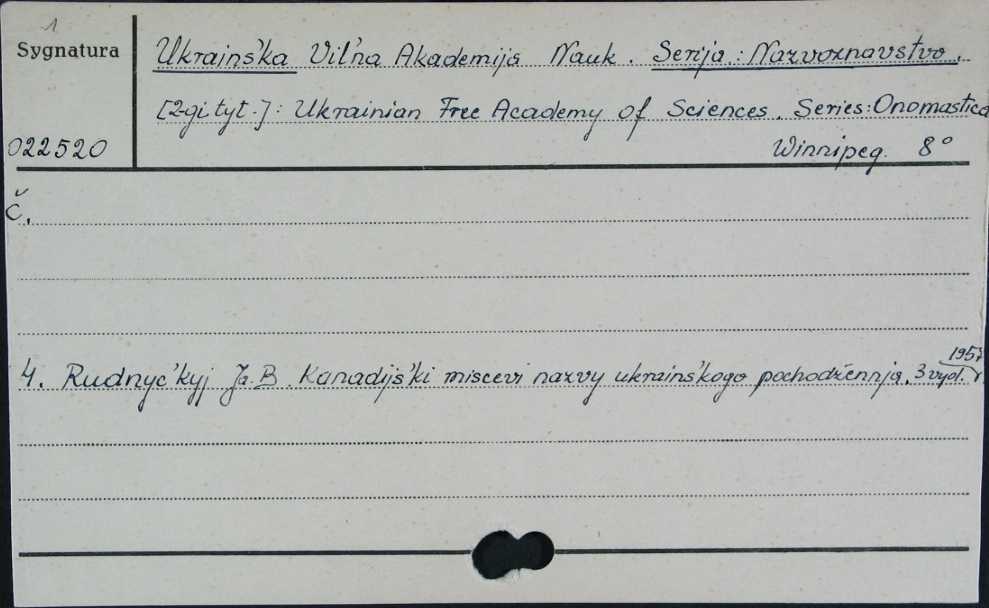 1
Sygnatura
Ukrains'ka Vil'na Akademija Nauk. Serija: Nazvoznavstvo.
[2-gi tyt.]: Ukrainian Free Academy of Sciences. Series: Onomastica
022520
Winnipeg. 8°
Č.
1957
4. Rudnyc'kyj Ja. B. Kanadijs'ki miscevi nazvy ukrains'kogo pochodžennja. 3 vyd.